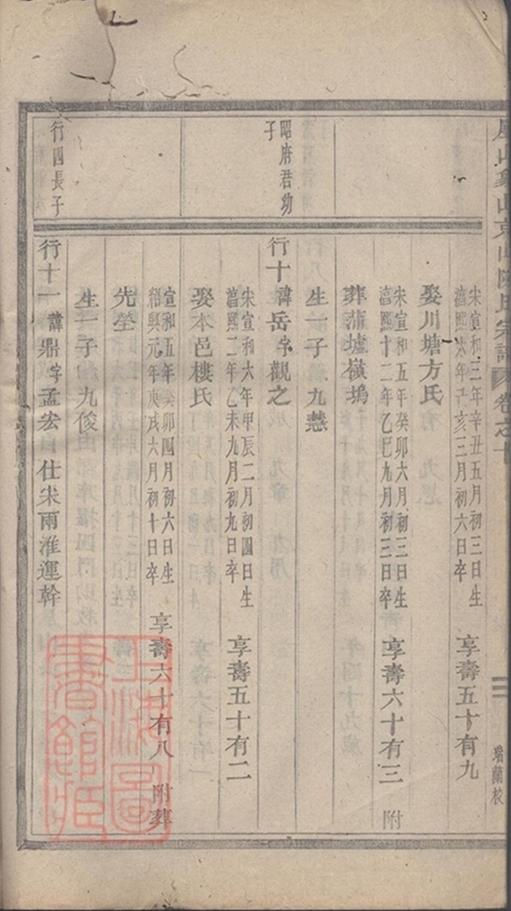 宋宣和三年辛丑五月初三日生
淳熙六年己亥三月初六日卒
享壽五十有九
娶川塘方氏
宋宣和五年癸卯六月初三日生
淳熙十二年乙巳九月初三日卒
享壽六十有三 附
葬蒲墟嶽塢
生一子 九慧
昭府君幼
子
行十 諱岳 字觀之
宋宣和六年甲辰二月初四日生
淳熙二年乙未九月初九日卒
享壽五十有二
娶本邑樓氏
宣和五年癸卯四月初六日生
紹熙元年庚戌六月初十日卒
享壽六十有八 附葬
先塋
生一子 九俊
行四長子
行十一 諱鼎 字孟宏 仕宋兩淮運幹